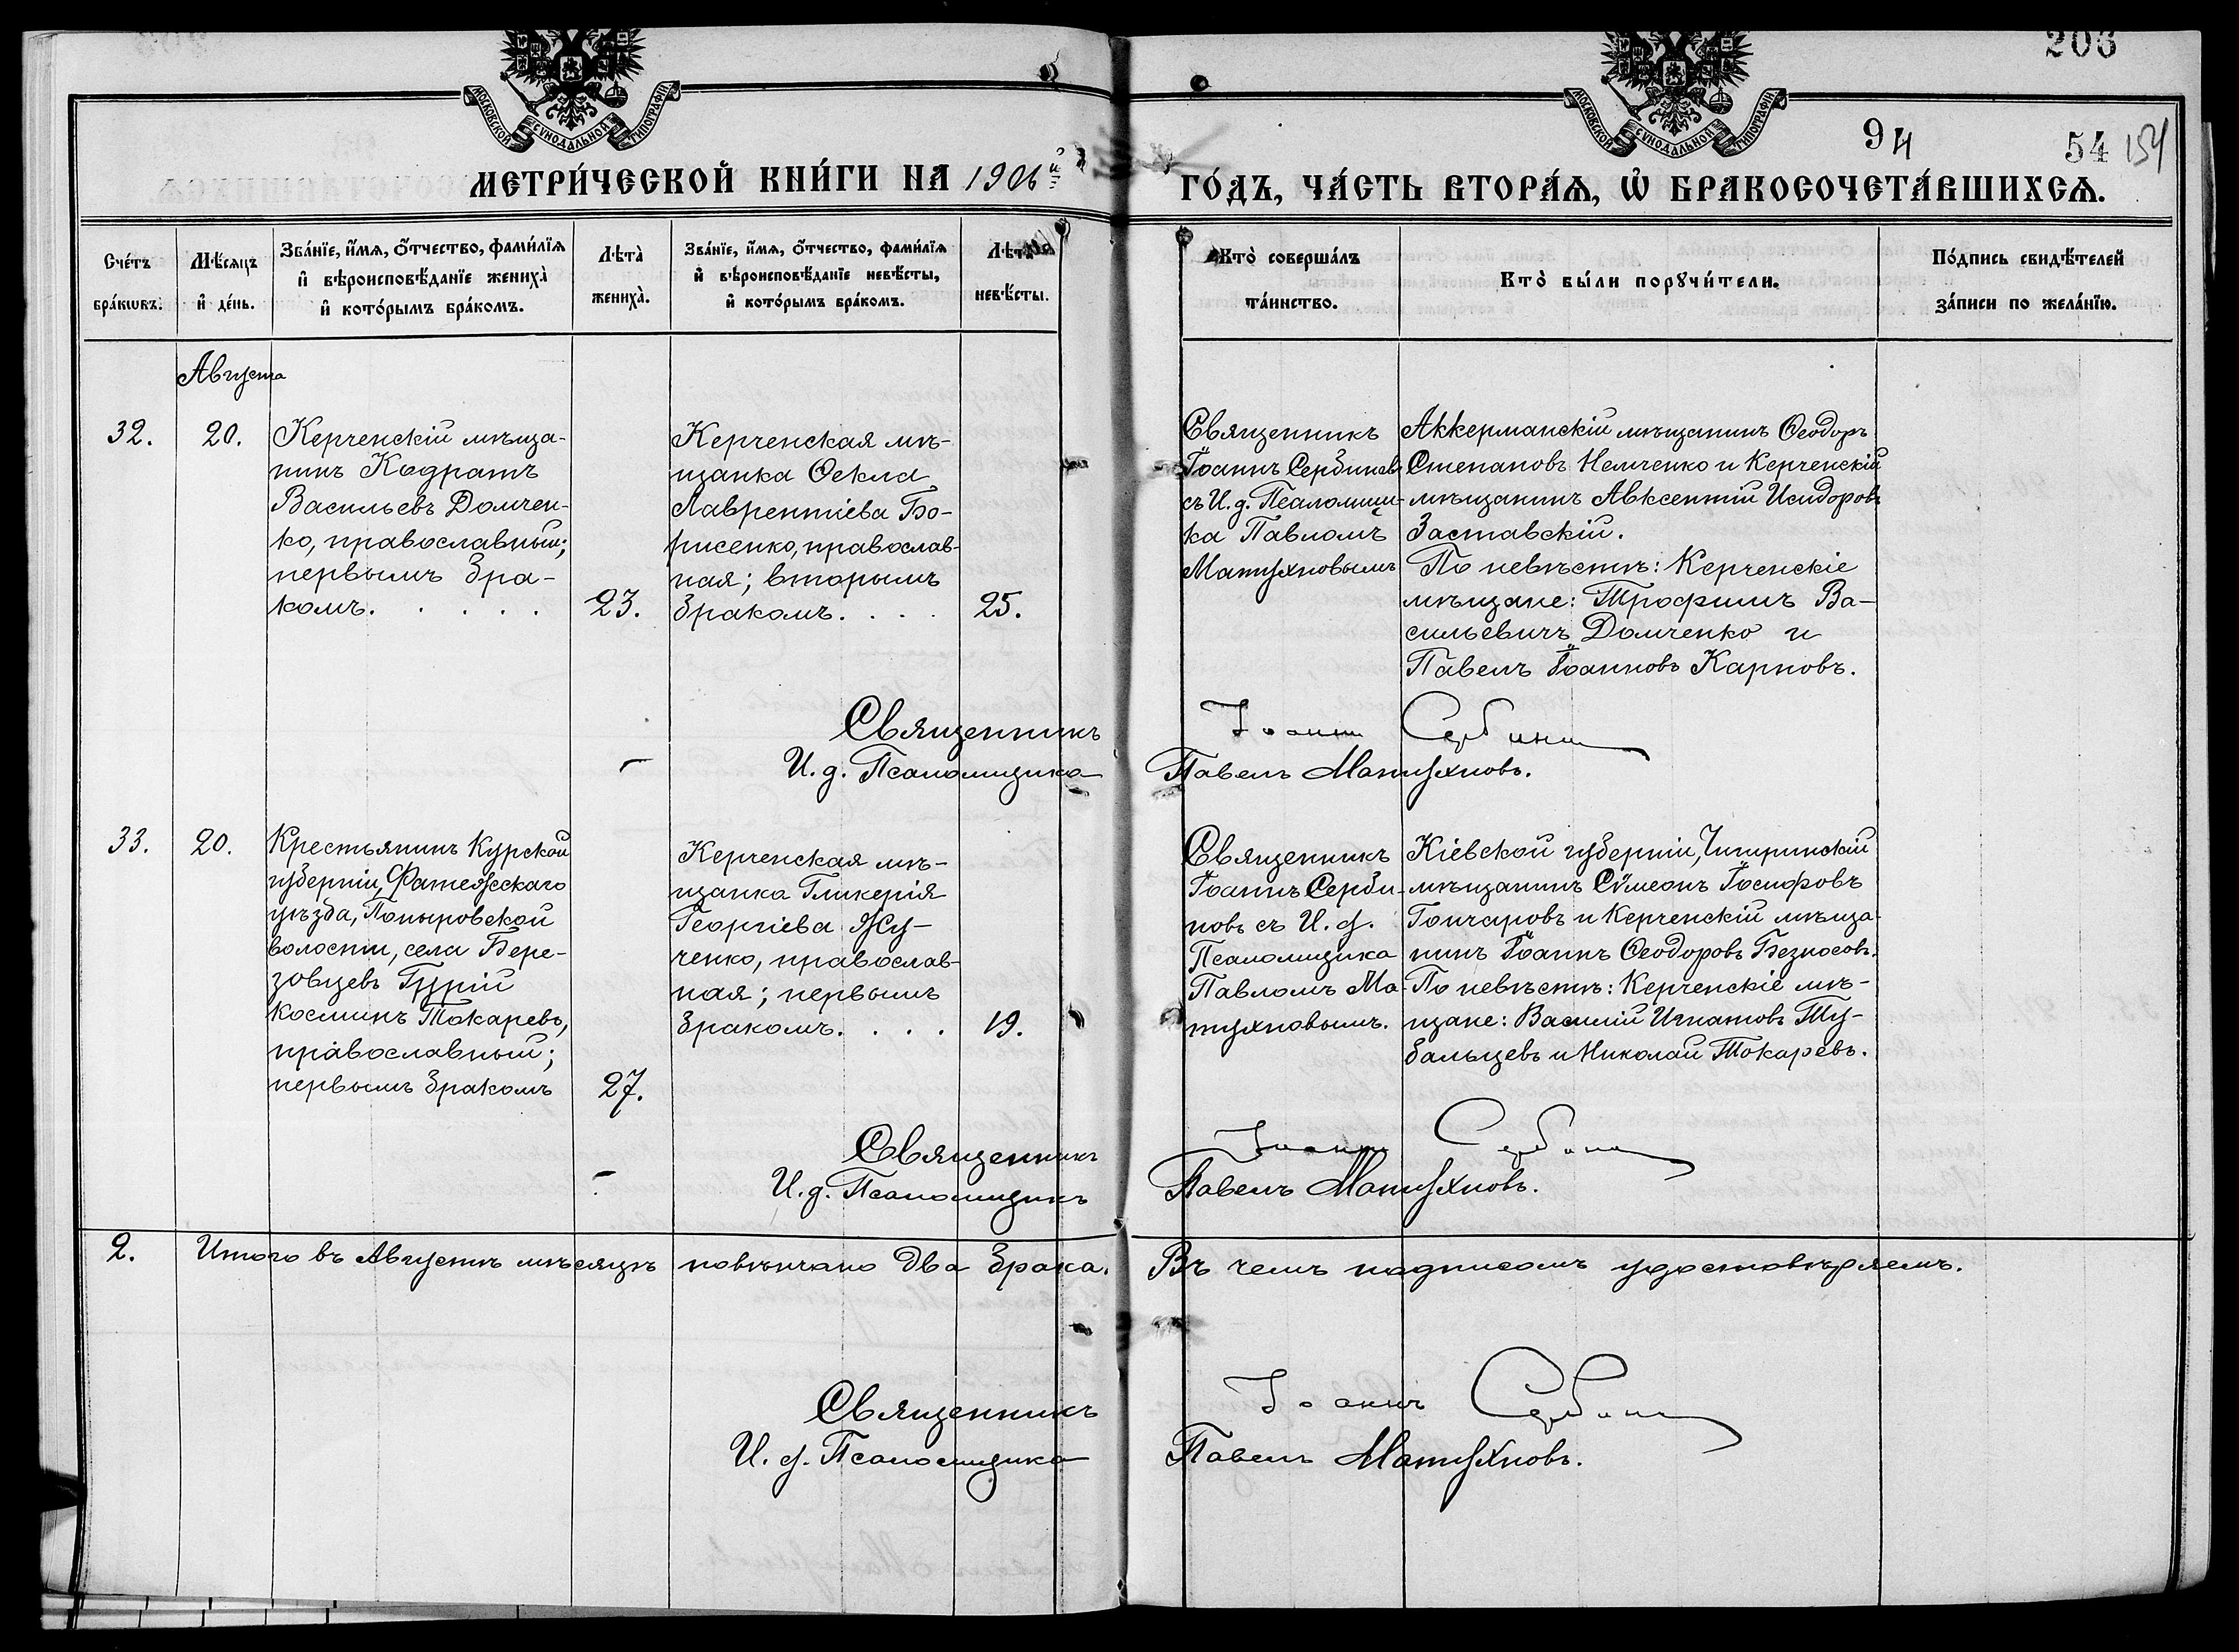 203
МОСКОВСКОЙ СѴНОДАЛЬНОЙ ТИПОГРАФІИ
МОСКОВСКОЙ СѴНОДАЛЬНОЙ ТИПОГРАФІИ
94
54 154
МЕТРИ́ЧЕСКОЙ КНИ́ГИ НА 1906й
ГО́ДЪ, ЧА́СТЬ ВТОРА́Ѧ, Ѡ҆ БРАКОСОЧЕТА́ВШИХСѦ.
Сче́тъ бра́кѡвъ.
Мѣ́сѧцъ и҆ де́нь.
Зва́нїе, и҆́мѧ, ѻ҆́тчество, фами́лїѧ
и҆ вѣроисповѣ́данїе жениха̀
и҆ кото́рымъ бра́комъ.
Лѣта̀ жениха̀.
Зва́нїе, и҆́мѧ, ѻ҆́тчество, фами́лїѧ
и҆ вѣроисповѣ́данїе невѣ́сты,
и҆ кото́рымъ бра́комъ.
Лѣта̀ невѣ́сты.
Кто̀ соверша́лъ
та́инство.
Кто̀ бы́ли порꙋчи́тели.
По́дпись свидѣ́телей
за́писи по жела́нїю.
Августа
32.
20.
Керченскій мѣща-
нинъ Кодратъ
Васильевъ Домчен-
ко, православный;
первымъ бра-
комъ. . . . . .
23.
Керченская мѣ-
щанка Ѳекла
Лаврентіева Бо-
рисенко, православ-
ная; вторымъ
бракомъ. . . .
25.
Священникъ
Іоаннъ Сербиновъ
съ И. д. Псаломщи-
ка Павломъ
Матухновымъ
Аккерманскій мѣщанинъ Ѳеодоръ
Степановъ Немченко и Керченскій
мѣщанинъ Авксентій Исидоровъ
Заставскій.
По невѣстѣ: Керченскіе
мѣщане: Трофимъ Ва-
сильевичъ Домченко и
Павелъ Іоанновъ Карповъ.
Священникъ Іоаннъ Сербинъ
И. д. Псаломщика Павелъ Матухновъ.
33.
20.
Крестьянинъ Курской
губерніи, Фатежсскаго
уѣзда, Поныровской
волости, села Бере-
зовцевъ Гурій
Косминъ Токаревъ,
православный;
первымъ бракомъ
27.
Керченская мѣ-
щанка Гликерія
Георгіева Жу-
ченко, православ-
ная; первымъ
бракомъ. . . .
19.
Священникъ
Іоаннъ Серби-
новъ съ И. д.
Псаломщика
Павломъ Ма-
тухновымъ.
Кіевской губерніи, Чигиринскій
мѣщанинъ Сѵмеонъ Іосифовъ
Гончаровъ и Керченскій мѣща-
нинъ Іоаннъ Ѳеодоровъ Безносовъ.
По невѣстѣ: Керченскіе мѣ-
щане: Василій Игнатовъ Ту-
бальцевъ и Николай Токаревъ.
Священникъ Іоаннъ Сербинъ
И. д. Псаломщикъ Павелъ Матухновъ.
2. Итого въ Августѣ мѣсяцѣ повѣнчано два брака. Въ чемъ подписомъ удостовѣряемъ.
Священникъ Іоаннъ Сербинъ
И. д. Псаломщика Павелъ Матухновъ.